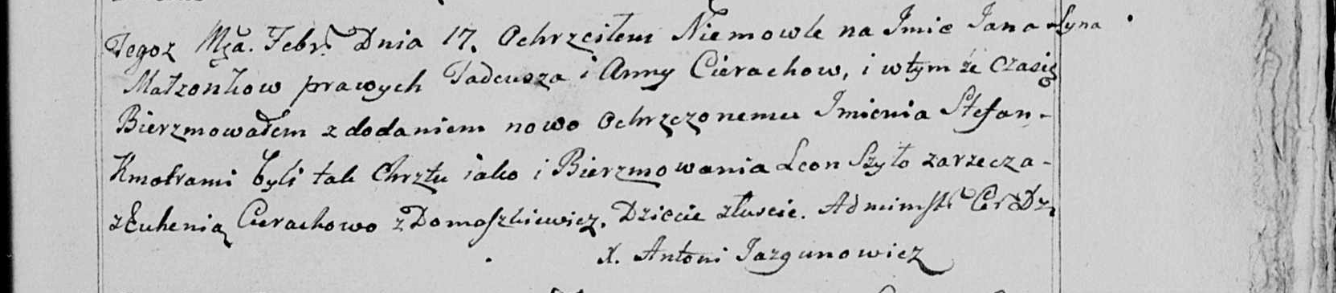 Tegoż Mca. Febr. Dnia 17. Ochrzciłem Niemowle na Imie Jana Syna
Małzonkow prawych Tadeusza i Anny Cierachow, i wtym że czasie
Bierzmowałem z dodaniem nowo Ochrzczonemu Imienia Stefan-
Kmotrami byli tak Chrztu iako i Bierzmowania Leon Szyło zarzecza-
z Euhenią Cierachowo z Domaszkiewicz. Dziecie złuscie. Adminstr Cer
X. Antoni Jazgunowicz